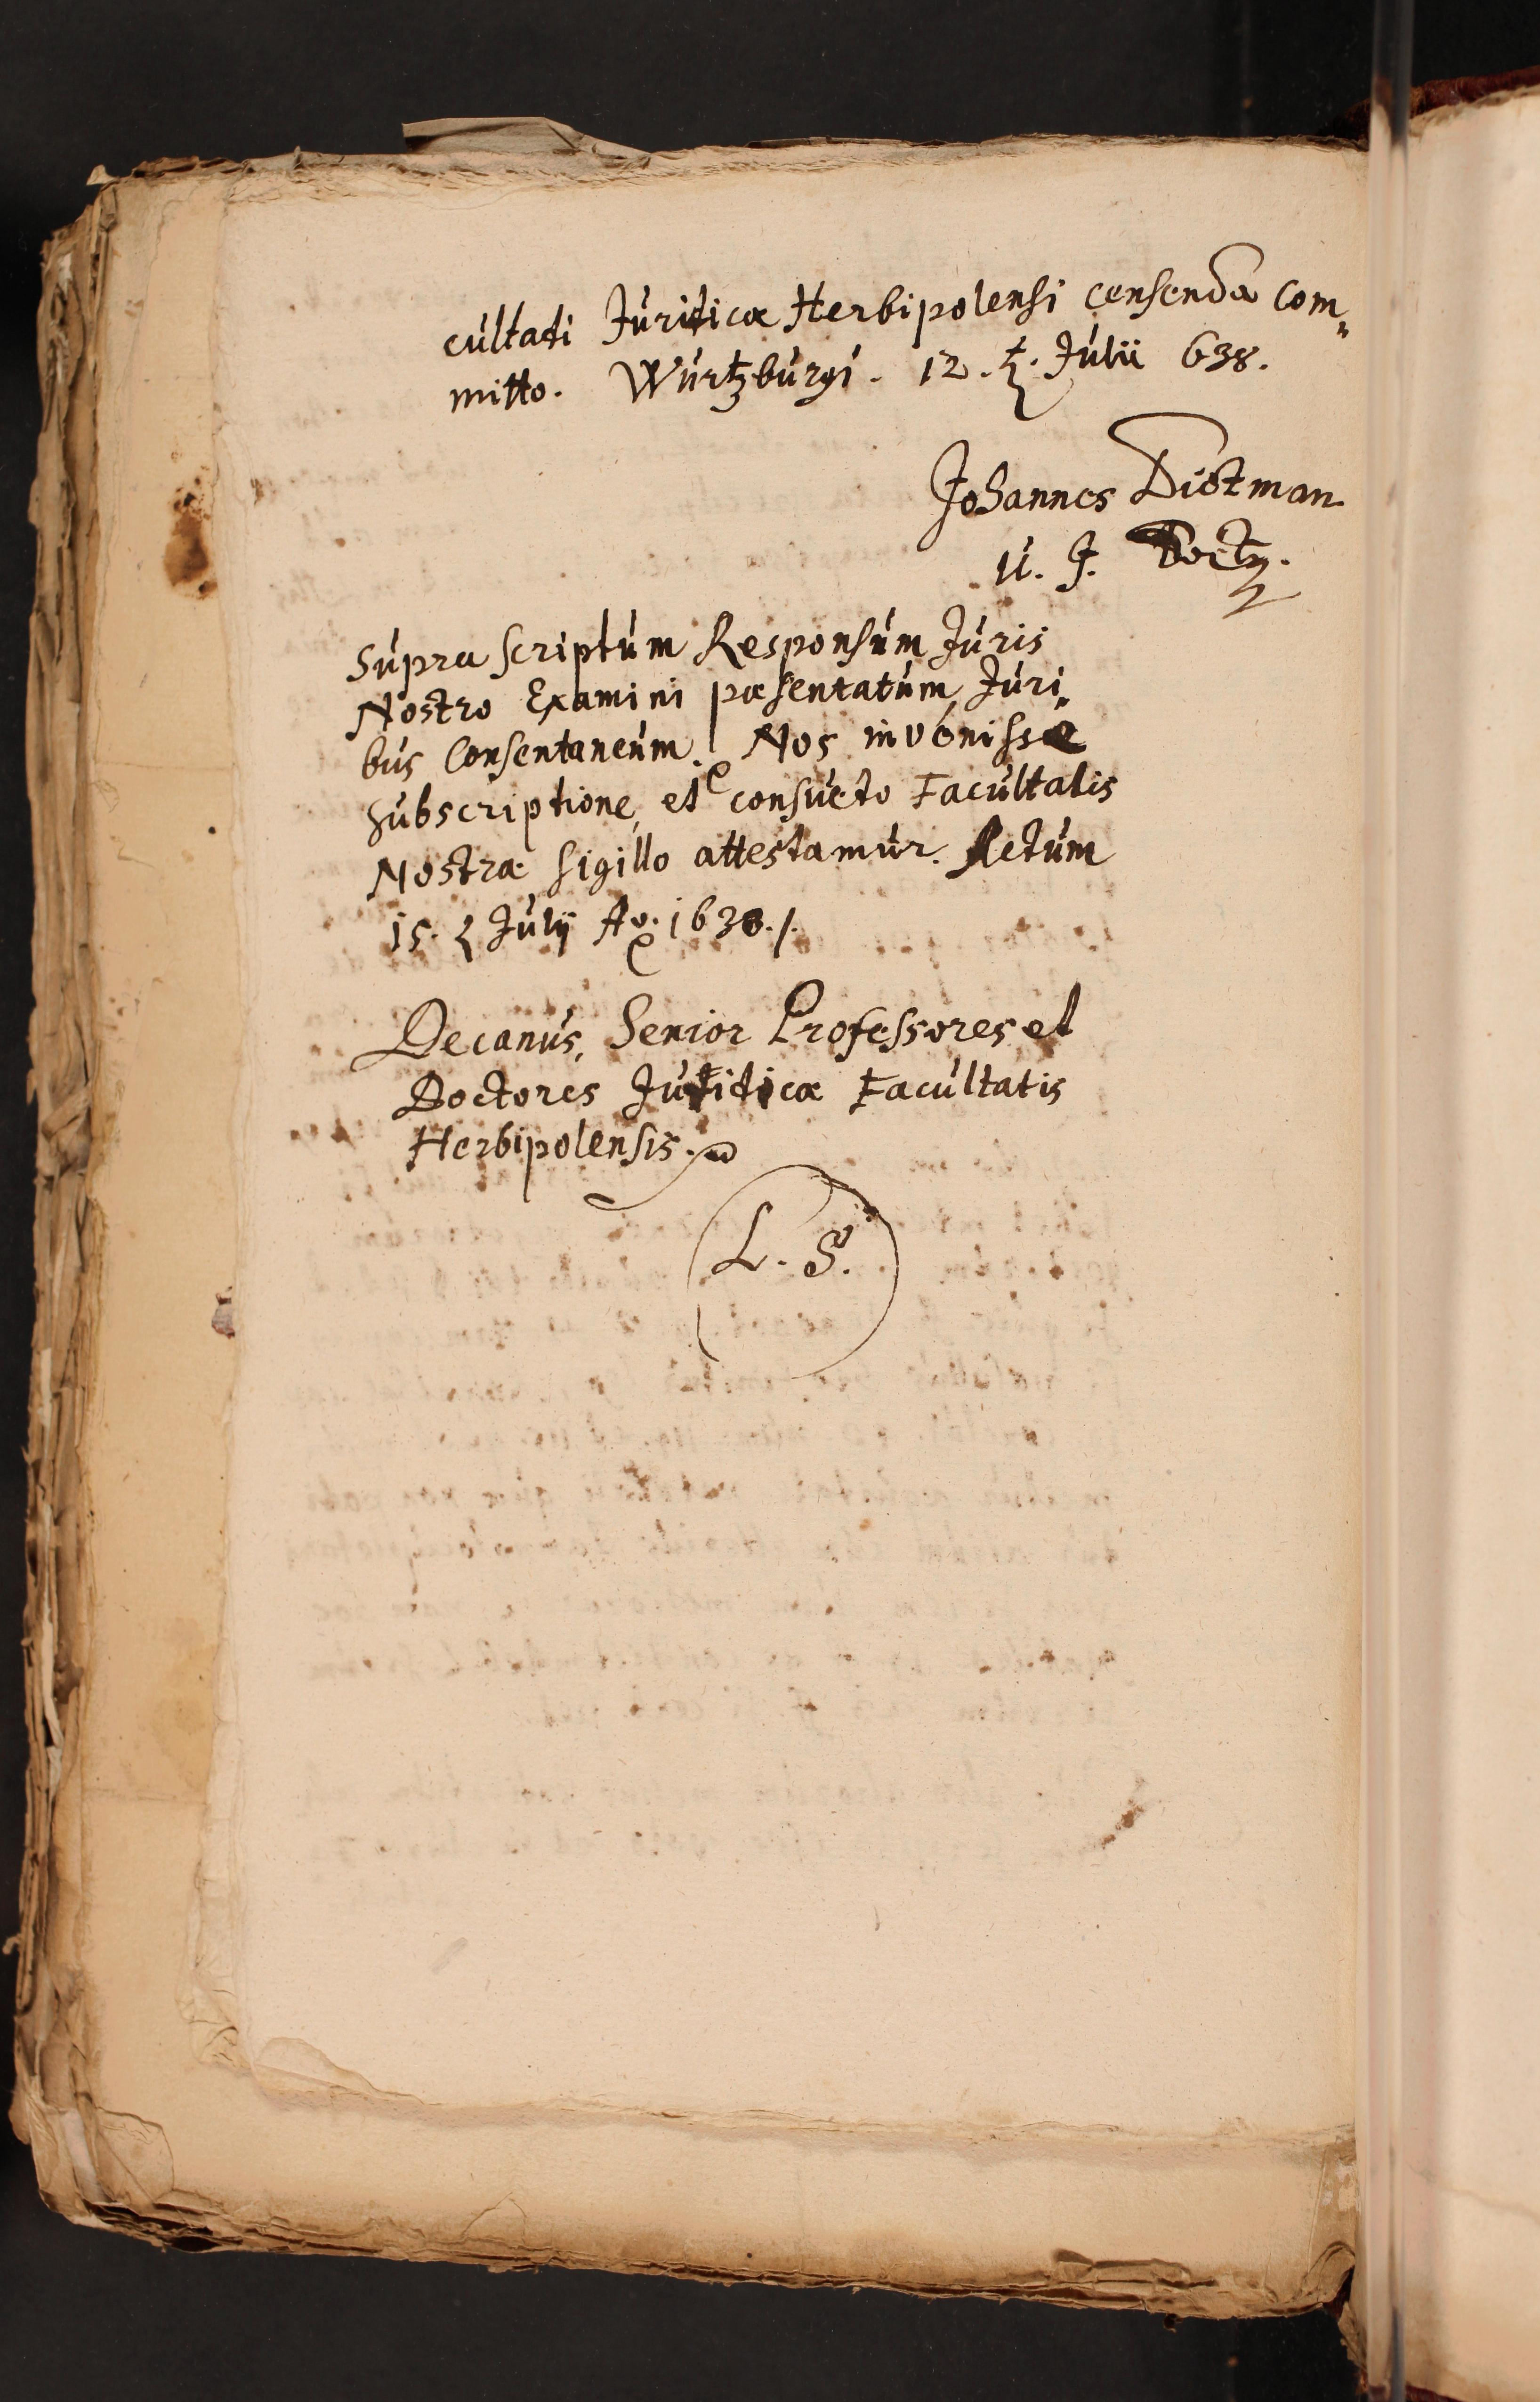 cultati Juridicæ Herbipolensi censenda com„
mitto. Würtzburgi. 12. t. Julii 638.
Johannes Dietman
U. J. Doctor.
Supra scriptum Responsum Juris
Nostro Examini præsentatum, Juri„
bus Consentaneum. Nos invenisse
subscriptione, et consueto Facultatis
Nostræ sigillo attestamur. Actum
15. t. Julij Ao. 1638./.
Decanus, Senior Professores et
Doctores Juridicæ Facultatis
Herbipolensis.
L. S.